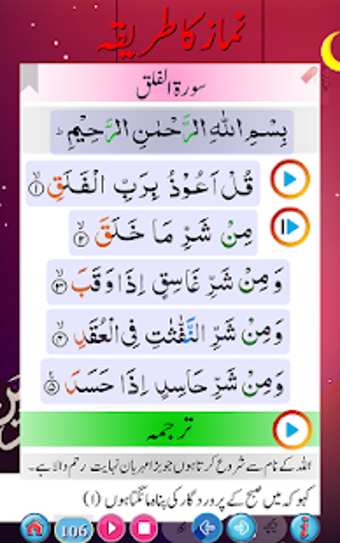 نماز کا طریقہ
سورة الفلق
بِسْمِ اللهِ الرَّحْمٰنِ الرَّحِيْمِ
قُلْ اَعُوْذُ بِرَبِّ الْفَلَقِۙ ۝۱
مِنْ شَرِّ مَا خَلَقَۙ ۝۲
وَ مِنْ شَرِّ غَاسِقٍ اِذَا وَقَبَۙ ۝۳
وَ مِنْ شَرِّ النَّفّٰثٰتِ فِی الْعُقَدِۙ ۝۴
وَ مِنْ شَرِّ حَاسِدٍ اِذَا حَسَدَ ۝۵
ترجمہ
اللہ کے نام سے شروع کرتا ہوں جو بڑا مہربان نہایت رحم والا ہے۔
کہو کہ میں صبح کے پروردگار کی پناہ مانگتا ہوں (۱)
106